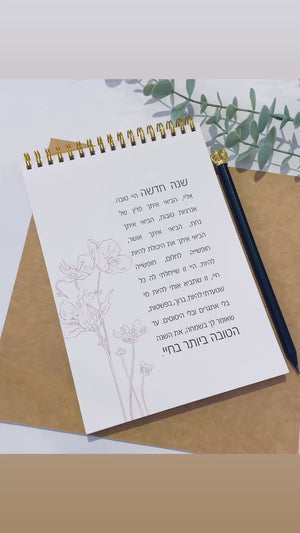 שנה חדשה היי טובה
אליי, הביאי איתך פרץ של
אנרגיות טובות, הביאי איתך
נחת, הביאי איתך אושר,
הביאי איתך את היכולת להיות
חופשייה לחלום, חופשייה
להיות. היי זו שייחלתי לה כל
חיי, זו שתביא אותי להיות מי
שנועדתי להיות, ברוך, בפשטות,
בלי אתגרים ובלי היסוסים. עד
שאומר לך בשמחה, את השנה
הטובה ביותר בחיי.